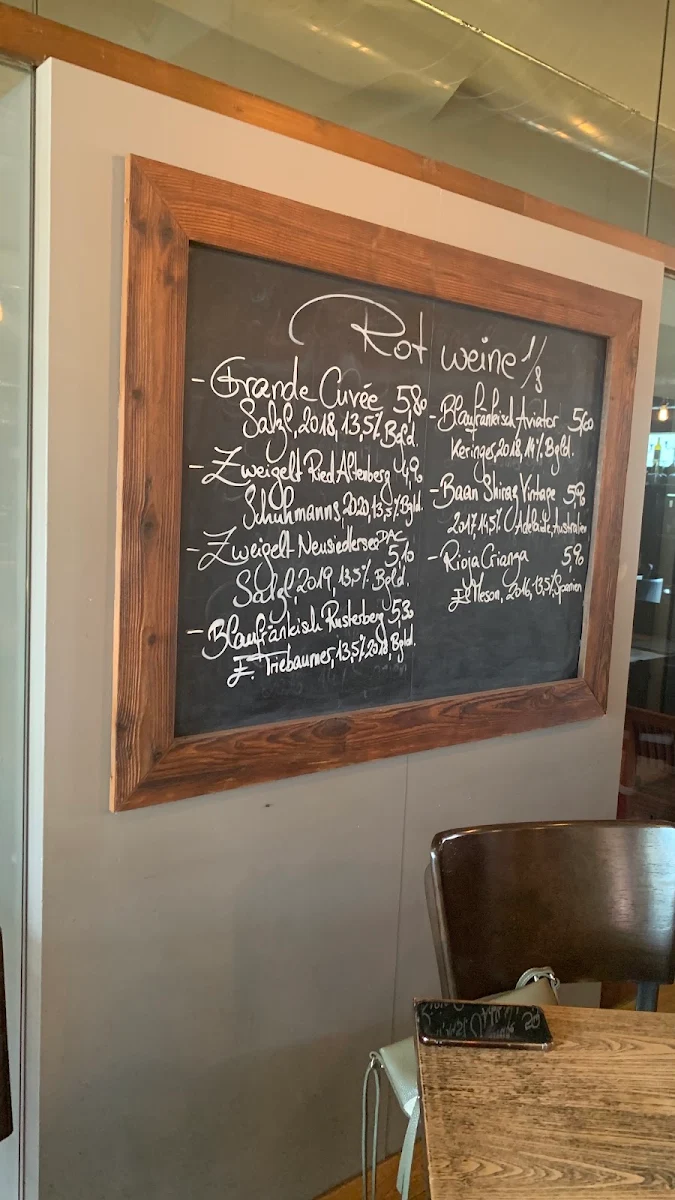 Rotweine 1/8
- Grande Cuvée 5,80
Salzl, 2018, 13,5% Bgld.
- Zweigelt Ried Altenberg 4,90
Schuhmanns, 2020, 13,5% Bgld.
- Zweigelt Neusiedlersee DAC 5,10
Salzl, 2019, 13,5% Bgld.
- Blaufränkisch Rusterberg 5,30
E. Triebaumer, 13,5% Bgld.
- Blaufränkisch Aviator 5,60
Keringer, 2018, 14% Bgld.
- Baan Shiraz Vintage 5,90
2017, 14,5% Adelaide, Australien
- Rioja Crianza 5,90
Meson, 2016, 13,5% Spanien